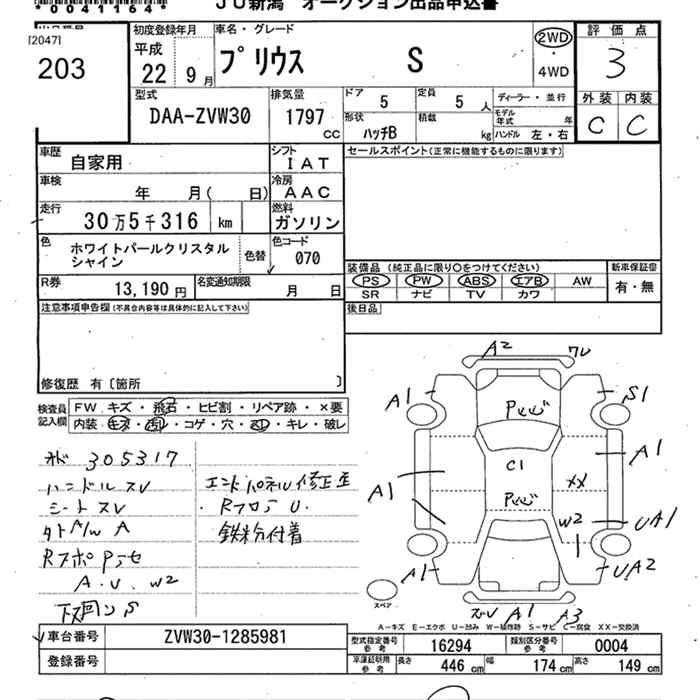 *0041164*
JU新潟 オークション出品申込書
[2047]
203
初度登録年月
平成
22年 9月
車名・グレード
プリウス S
2WD
・
4WD
評価点
3
外装 内装
C C
型式
DAA-ZVW30
排気量
1797 cc
ドア 5
定員 5 人
ディーラー・並行
形状 ハッチB
積載 kg
モデル年式 年
ハンドル 左・右
車歴
自家用
シフト
IAT
セールスポイント(正常に機能するものに限ります)
車検
年 月( 日)
冷房
AAC
走行
30万5千316 km
燃料
ガソリン
色
ホワイトパールクリスタル
シャイン
色替
色コード
070
装備品 (純正品に限り○をつけてください)
新車保証書
PS PW ABS エアB AW
SR ナビ TV カワ
有・無
R券
13,190 円
名変通知期限
月 日
後日品
注意事項申告欄(不具合内容等は具体的に記入して下さい)
修復歴 有〔箇所 〕
検査員
記入欄
FW キズ・飛石・ヒビ割・リペア跡・×要
内装 キズ・汚レ・コゲ・穴・ヨレ・キレ・破レ
305317
ハンドルスV
シートスV
A・U・W2
エンドパネル修正歪
RフロアU.
鉄粉付着
A2
A1
S1
A1
C1
A1
XX
W2
UA1
A1
UA2
A1
A3
スペア
A-キズ E-エクボ U-凹み W-補修跡 S-サビ C-腐食 XX-交換済
車台番号
ZVW30-1285981
登録番号
型式指定番号
参考
16294
類別区分番号
参考
0004
車庫証明用
参考
長さ 446 cm
幅 174 cm
高さ 149 cm